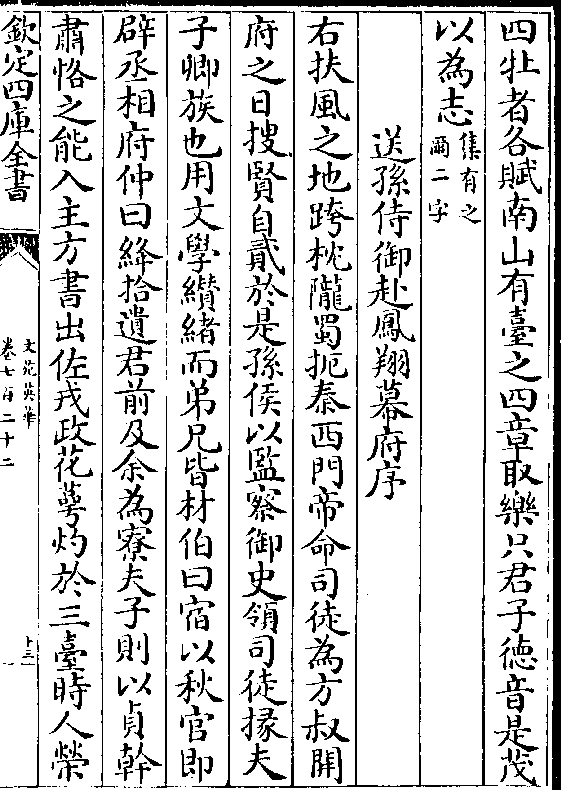 四牡者各賦南山有臺之四章取樂只君子徳音是茂
以為志集有之
爾二字
送孫侍御赴鳳翔幕府序
右扶風之地跨枕隴蜀扼秦西門帝命司徒為方叔開
府之日搜賢自貳於是孫侯以監察御史領司徒掾夫
子卿族也用文學纘緒而弟兄皆材伯曰宿以秋官即
辟丞相府仲曰絳拾遺君前及余為寮夫子則以貞幹
肅恪之能入主方書出佐戎政花萼灼於三臺時人榮
欽定四庫全書
文苑英華
卷七百二十二
十三